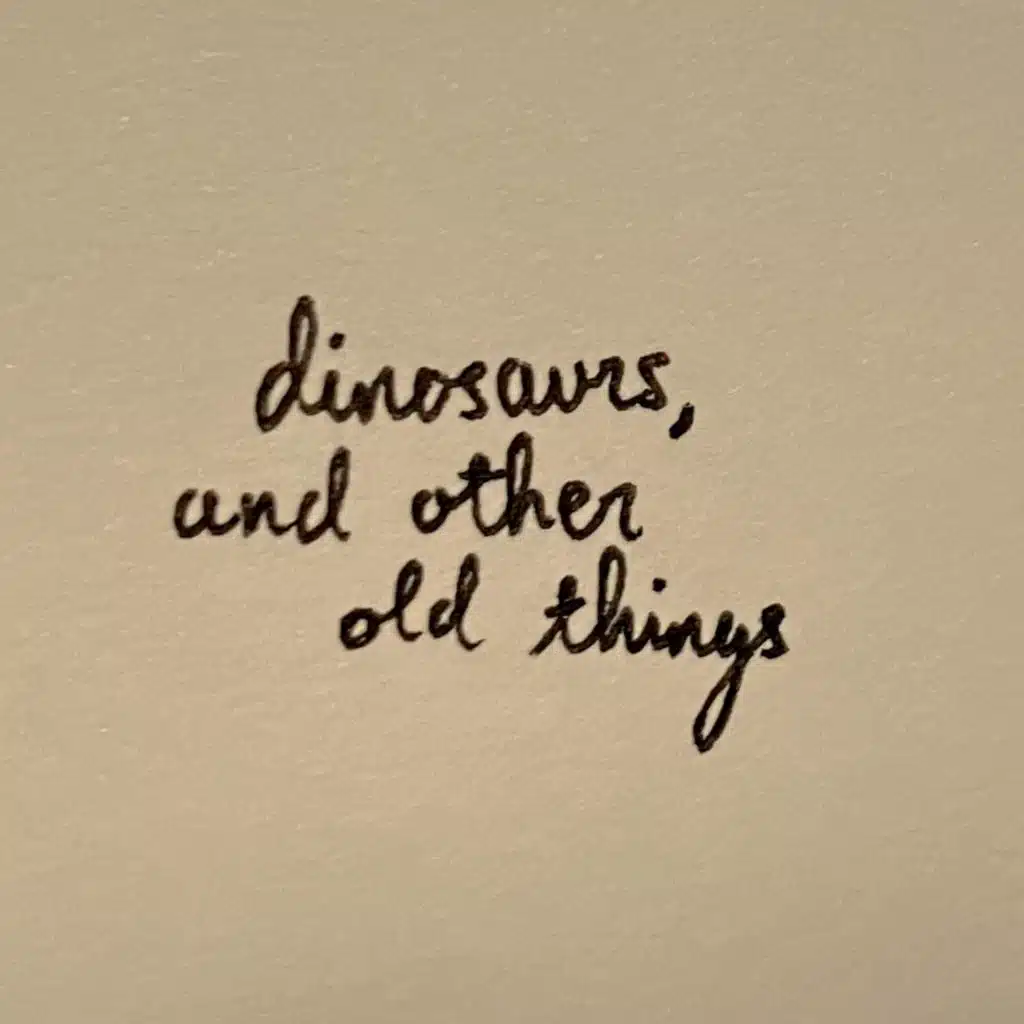 dinosaurs,
and other
old things